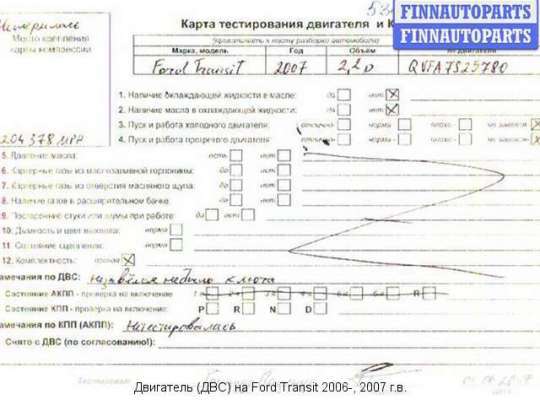 FINNAUTOPARTS
FINNAUTOPARTS
Карта тестирования двигателя и К
Место крепления
карты компрессии
Марка, модель
Год
Объём
Ford Transit
2007
2,2D
QVFA7S25780
204378
1. Наличие охлаждающей жидкости в масле: да нет
2. Наличие масла в охлаждающей жидкости: да нет
3. Пуск и работа холодного двигателя: отлично норма плохо
4. Пуск и работа прогретого двигателя: отлично норма плохо
5. Давление масла: есть нет
6. Картерные газы из маслозаливной горловины: да нет
7. Картерные газы из отверстия масляного щупа: да нет
8. Наличие газов в расширительном бачке: да нет
9. Посторонние стуки или шумы при работе: да нет
10. Дымность и цвет выхлопа: норма
11. Состояние сцепления: норма
12. Комплектность: полная
амечания по ДВС: не было ключа
Состояние АКПП - проверка на включение R
Состояние КПП - проверка на включение: P R N D
амечания по КПП (АКПП): Не тестировалась
Снято с ДВС (по согласованию!):
Двигатель (ДВС) на Ford Transit 2006-, 2007 г.в.